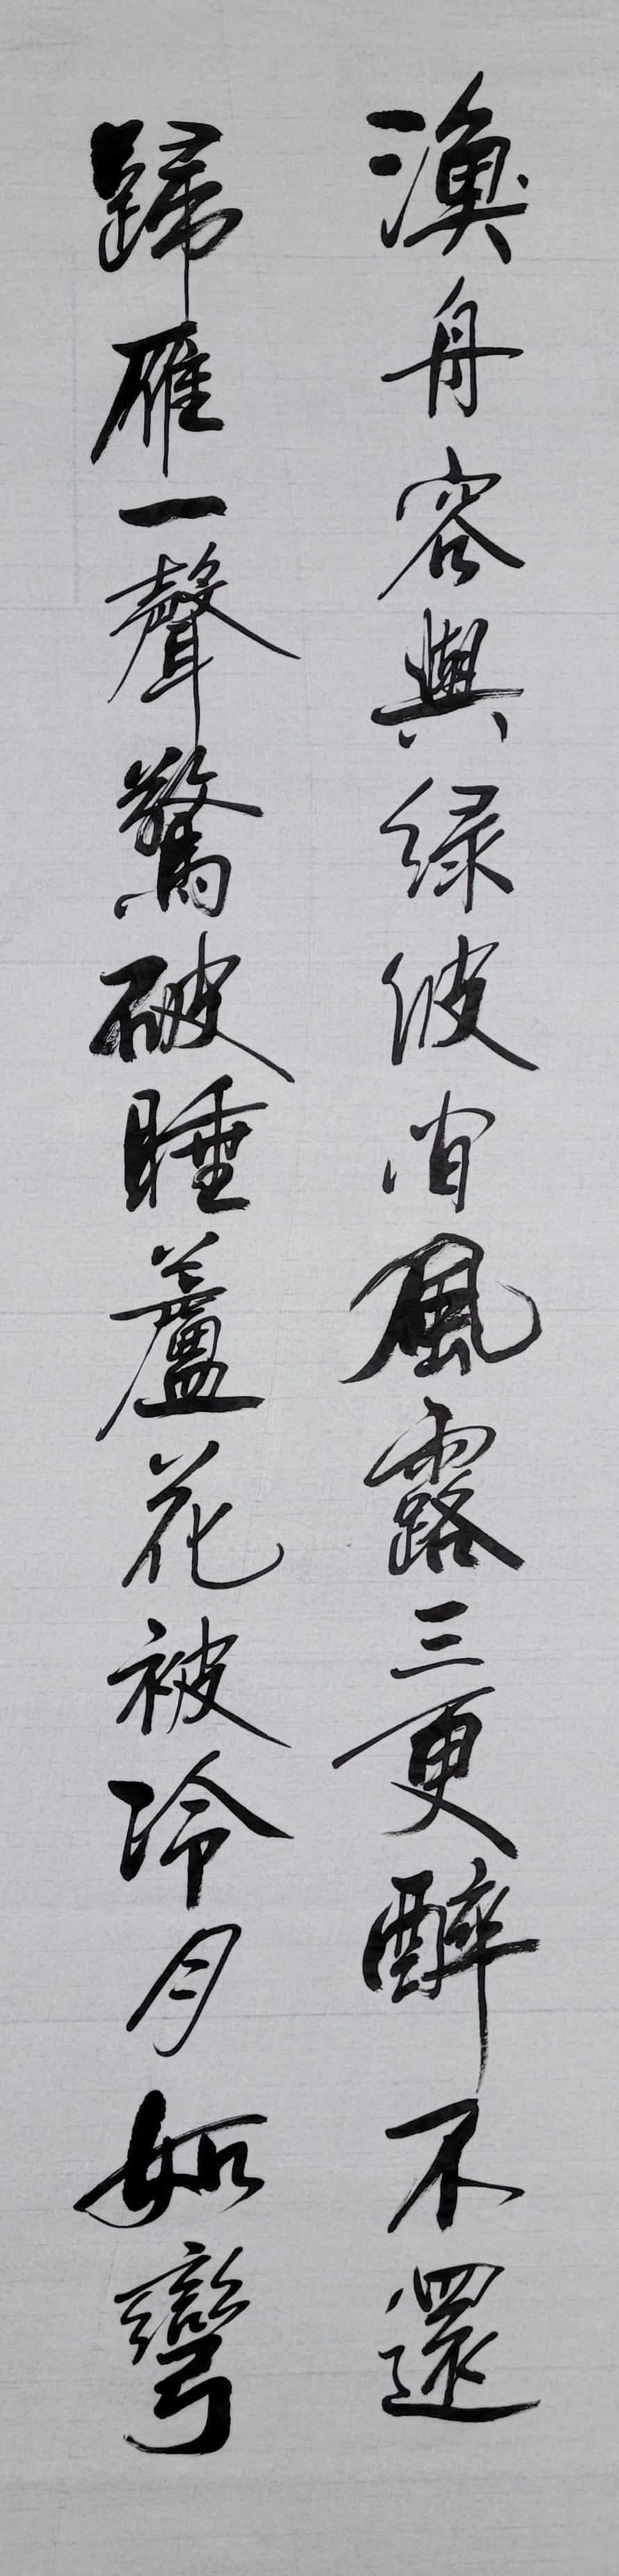 漁舟容與緑波間風露三更醉不還
歸雁一聲驚破睡蘆花被冷月如彎